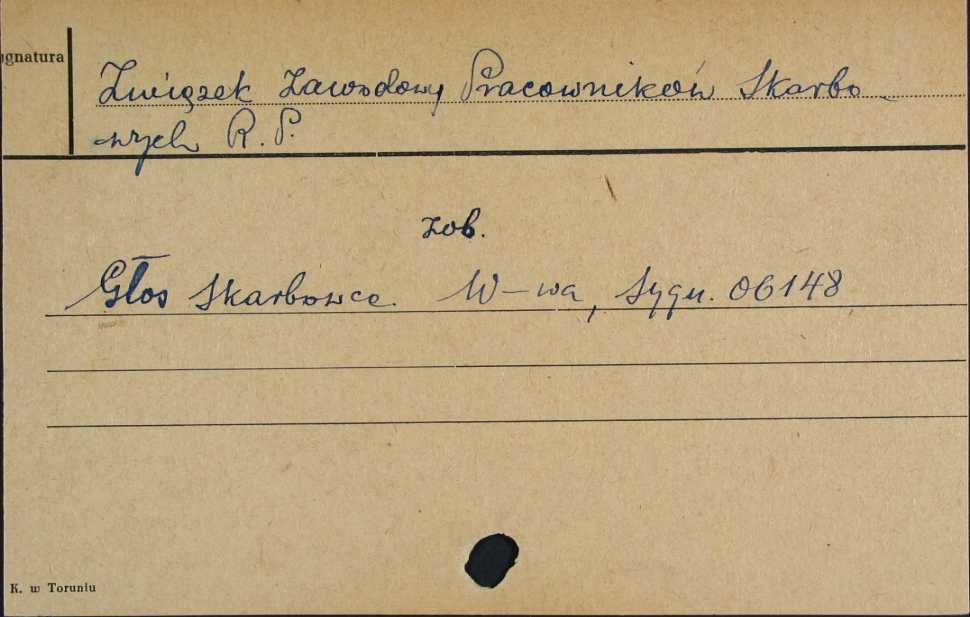 ygnatura
Związek Zawodowy Pracowników Skarbo-
wych R. P.
zob.
Głos Skarbowca. W-wa, Sygn. 06148
K. w Toruniu